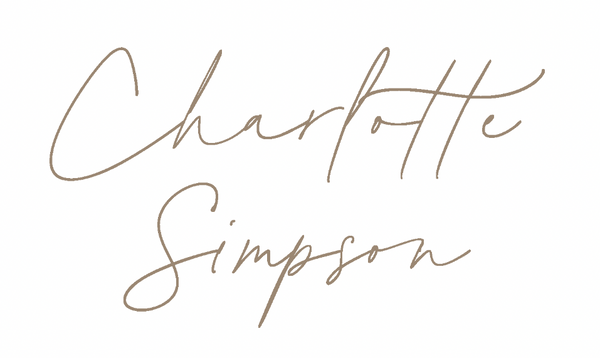 Charlotte
Simpson